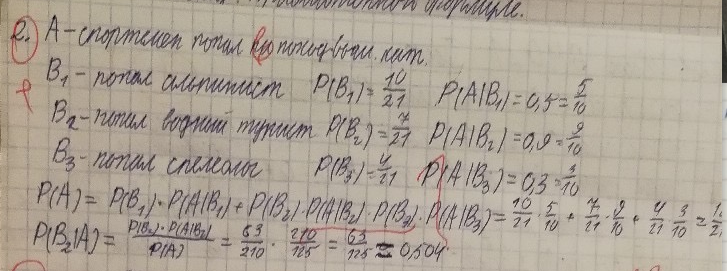 формуле.
2. A – спортсмен попал
B₁ – попал альпинист P(B₁) = 10/21 P(A|B₁) = 0,5 = 5/10
B₂ – попал водный турист P(B₂) = 7/21 P(A|B₂) = 0,9 = 9/10
B₃ – попал спелеолог P(B₃) = 4/21 P(A|B₃) = 0,3 = 3/10
P(A) = P(B₁) · P(A|B₁) + P(B₂) · P(A|B₂) · P(B₃) · P(A|B₃) = 10/21 · 5/10 + 7/21 · 9/10 + 4/21 · 3/10 =
P(B₂|A) = P(B₂) · P(A|B₂)/P(A) = 63/210 · 210/125 = 63/125 = 0,504